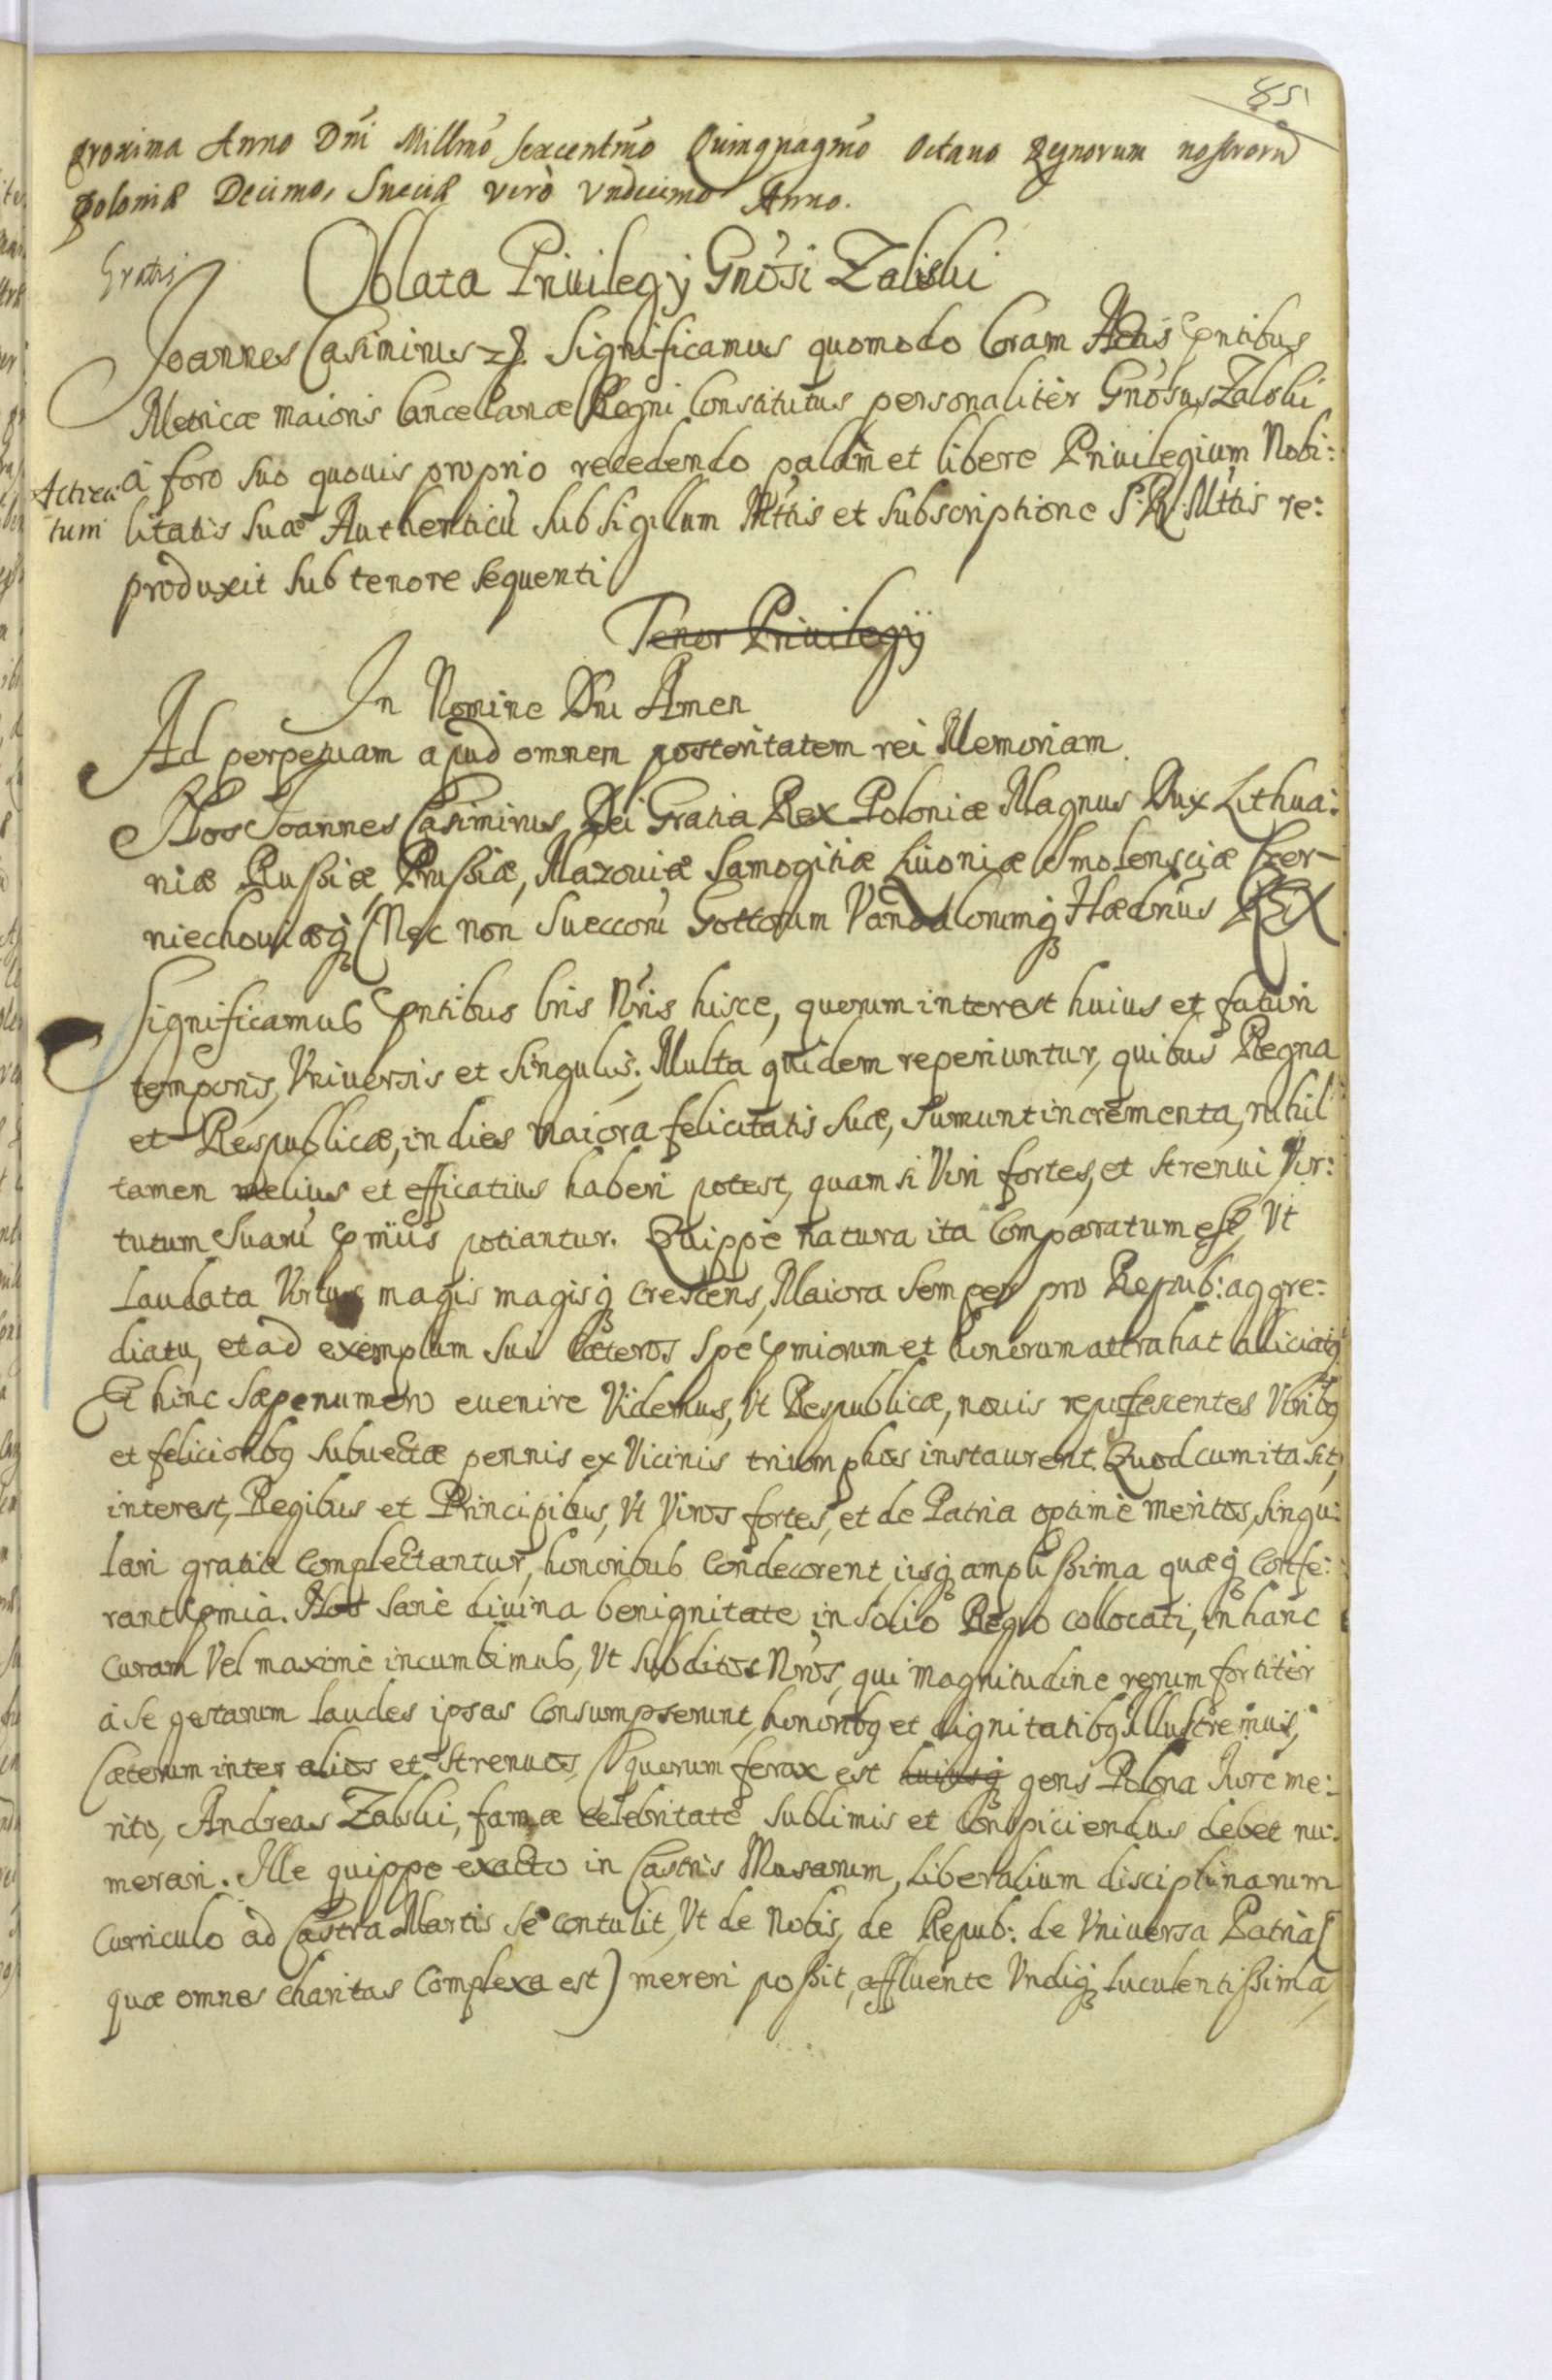 851
proxima Anno Dni Millmo sexcentmo Quinquagmo Octauo Regnorum nostrorũ
Poloniæ Decimo, Sueciæ verò Vndecimo Anno.
Gratis
Oblata Priuilegÿ Gnosi Zaliski
Joannes Casimirus Significamus quomodo Coram Actis pntibus
Metricæ maioris Cancellariæ Regni Constitutus personalitèr Gnosus Zalski
à foro suo quouis proprio recedendo palàm et libere Priuilegium Nobi:
Acticatum
litatis suæ Authenticũ sub sigillum Mttis et subscriptione S. R. Mttis re:
produxit sub tenore sequenti
Tenor Priuilegÿ
In Nomine Dni Amen
Ad perpetuam apud omnem posteritatem rei Memoriam.
Nos Joannes Casimirus Dei Gratia Rex Poloniæ Magnus Dux Lithua:
niæ Russiæ, Prussiæ, Mazouiæ Samogitiæ Liuoniæ Smolensciæ Czer-
niechouiæq Nec non Sueccorũ Gottorum Vandalorumq Hædrius REX
Significamus pntibus lris Nris hisce, quorum interest huius et futuri
temporis, Vniuersis et singulis. Multa quidem reperiuntur, quibus Regna
et Respublicæ, in dies maiora felicitatis suæ, sumunt incrementa, nihil
tamen melius et efficatius haberi potest, quam si Viri fortes, et strenui Vir:
tutum suarũ pmiis potiantur. Quippè natura ita Comparatum est, Vt
laudata Virtus magis magisq crescens, Maiora semper pro Repub: aggre:
diatu, et ad exemplum sui Cæteros spe pmiorum et honorum attrahat alliciatq
Et hinc sæpenumero euenire Videmus, Vt Respublicæ, nouis repuberscentes Viribq
et felicioribq subuectæ pennis ex Vicinis triumphos instaurent. Quod cum ita sit,
interest, Regibus et Principibus, Vt Viros fortes, et de Patria optimè meritos, singu:
lari gratia complectantur, honoribus condecorent, iisq amplissima quæq confe:
rant pmia. Nos sanè diuina benignitate in solio Regio collocati, in hanc
curam Vel maximè incumbimus, Vt subditos Nros, qui magnitudine rerum fortitèr
à se gestarum laudes ipsas Consumpserunt, honoribq et dignitatibq illustremus,
Cæterum inter alios et strenuos, quorum ferax est huiusq gens Polona Iure me:
rito, Andreas Zalski, famæ celebritate sublimis et Conspiciendus debet nu:
merari. Ille quippe exacto in Castris Musarum, liberalium disciplinarum
curriculo ad Castra Martis se contulit, Vt de Nobis, de Repub: de Vniuersa Patria (
quæ omnes charitas Complexa est) mereri possit, affluente Vndiq luculentissima,